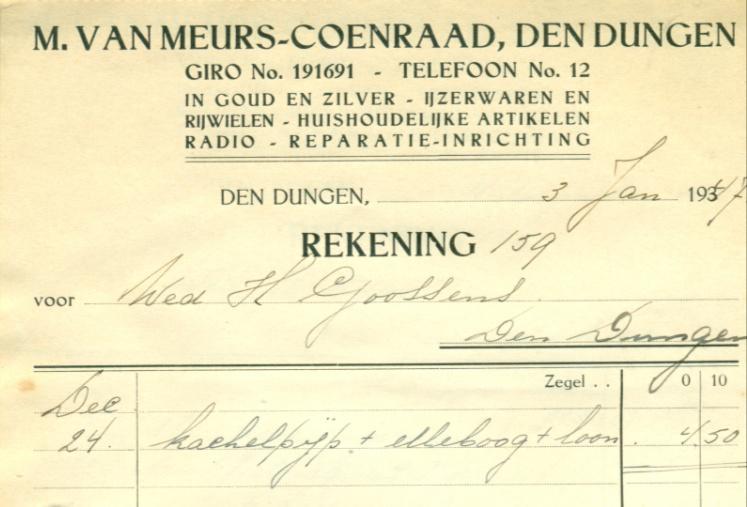 M. VAN MEURS-COENRAAD, DEN DUNGEN
GIRO No. 191691 - TELEFOON No. 12
IN GOUD EN ZILVER - IJZERWAREN EN
RIJWIELEN - HUISHOUDELIJKE ARTIKELEN
RADIO - REPARATIE-INRICHTING
DEN DUNGEN, 3 Jan 1947
REKENING 159
voor Wed H Goossens.
Den Dungen
Zegel . . 0 10
Dec
24. kachelpijp + elleboog + loon. 4,50